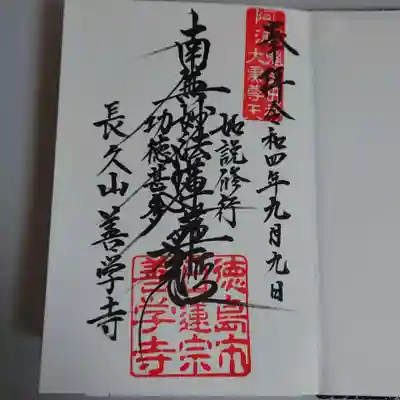 奉拝 令和四年九月九日
如説修行
南無妙法蓮華経
功徳甚多
長久山 善学寺
徳島市
日蓮宗
善学寺